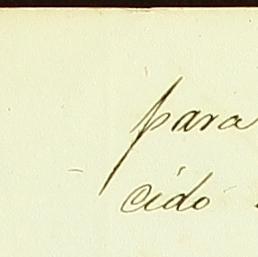 para
cido